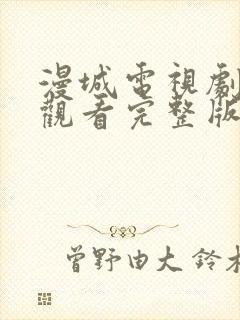 漫城電視劇
觀看完整版
曾野由大 鈴木